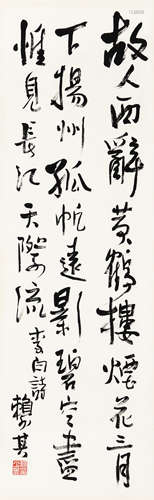 故人西辭黄鶴樓煙花三月
下揚州孤帆遠影碧空盡
惟見長江天際流 李白詩
賴少其